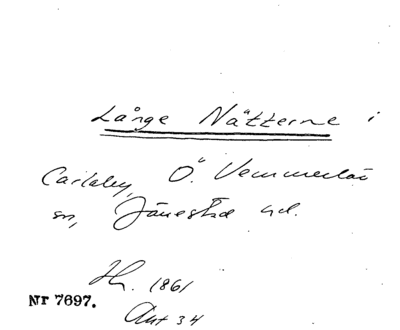 Långe Nätterne i
Carlaby, Ö. Vemmerlöv
sn, Järrestad hd.
Hh. 1861
Nr 7697.
Ant 34